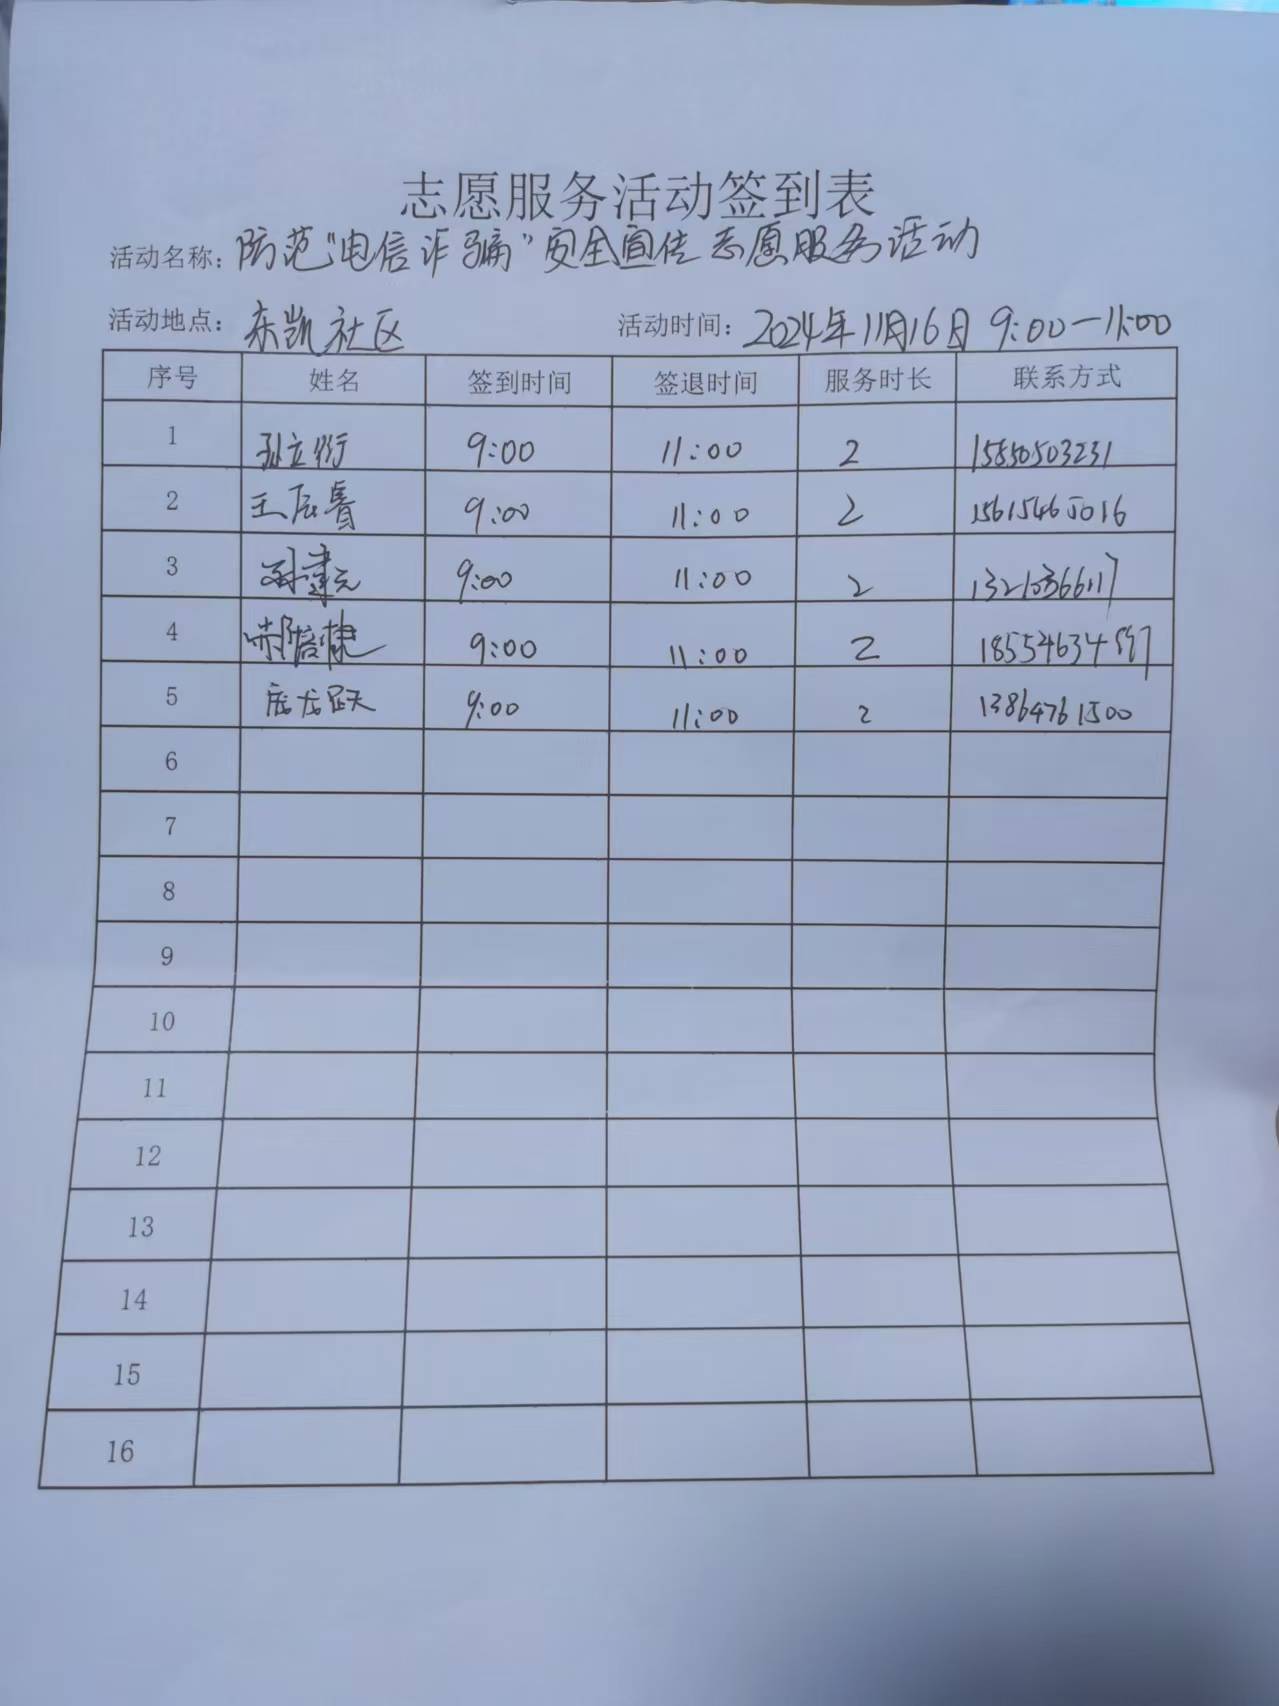 志愿服务活动签到表
活动名称：防范“电信诈骗”安全宣传志愿服务活动
活动地点：东凯社区 活动时间：2024年11月16日 9:00—11:00
序号 姓名 签到时间 签退时间 服务时长 联系方式
1 孙立衍 9:00 11:00 2 15850503231
2 王辰睿 9:00 11:00 2 15615465016
3 孙建元 9:00 11:00 2
4 郝培捷 9:00 11:00 2
5 庞龙跃 9:00 11:00 2 13864761500
6
7
8
9
10
11
12
13
14
15
16